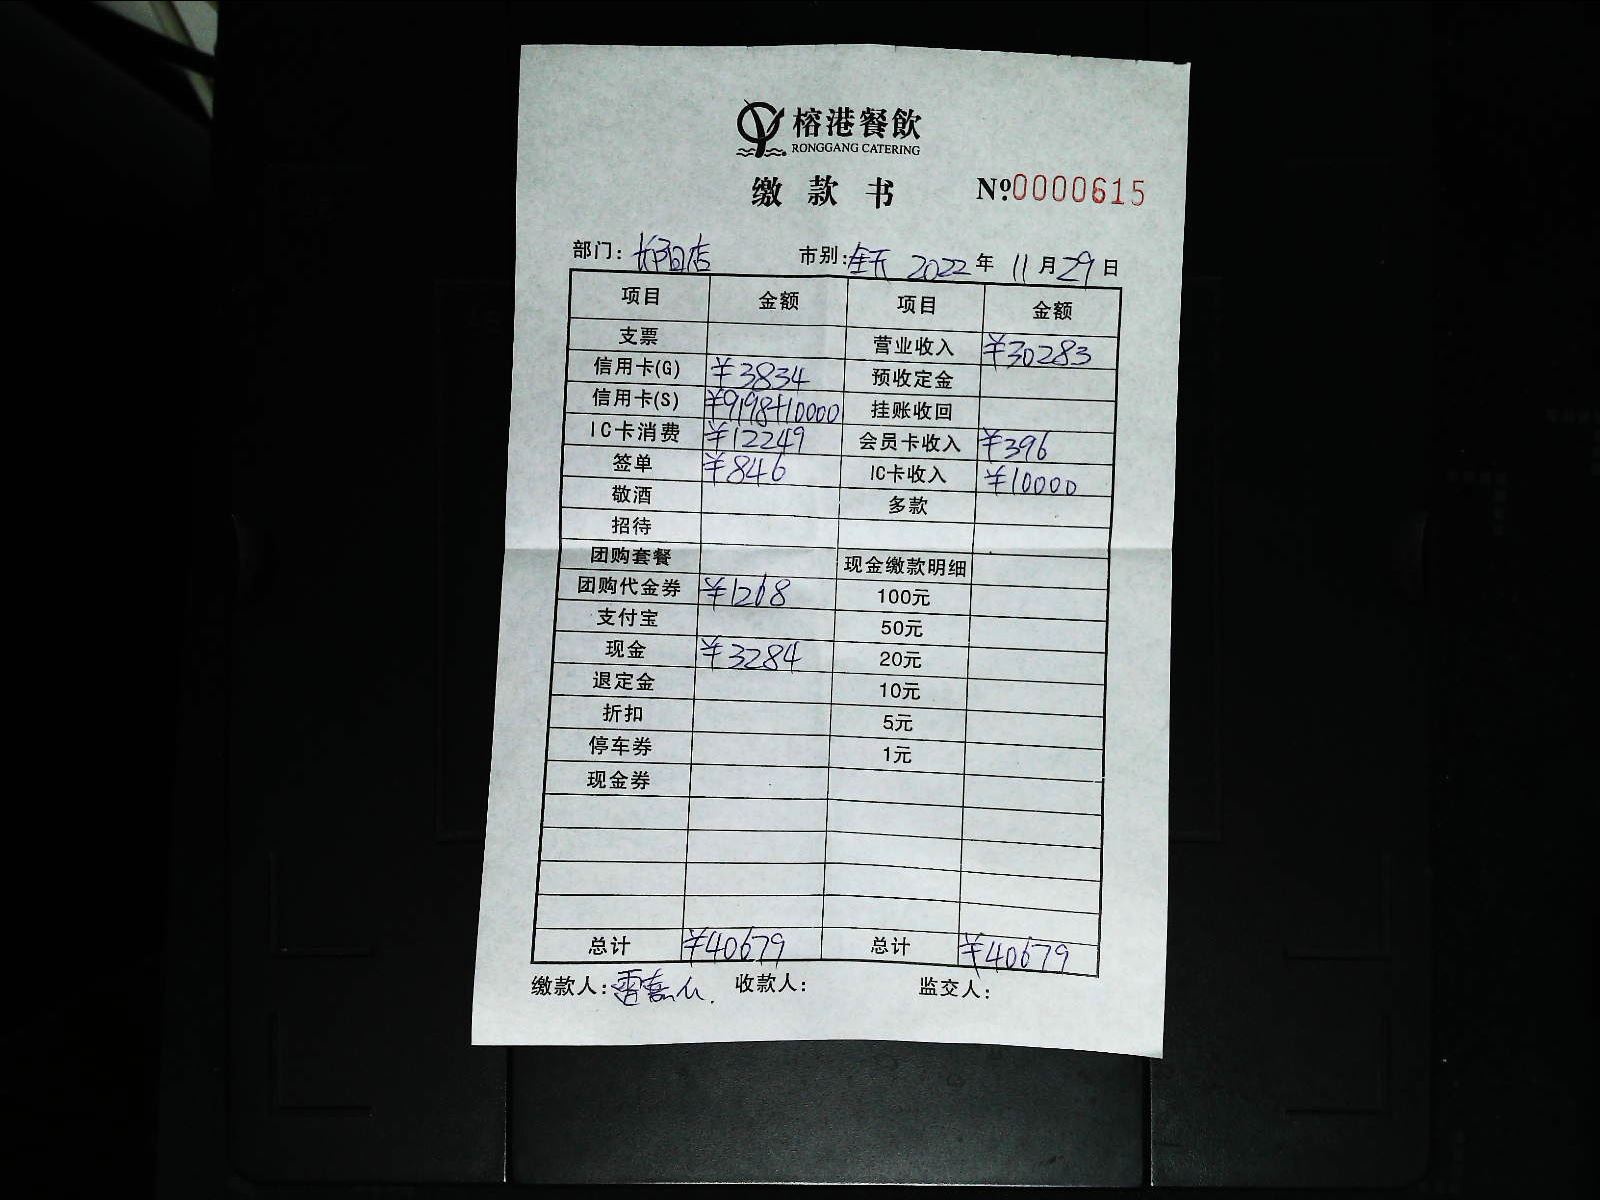 榕港餐飲
RONGGANG CATERING
缴款书 №0000615
部门: 店 市别: 全天 2022年 11月29日
项目 金额 项目 金额
支票 营业收入 ¥30283
信用卡(G) ¥3834 预收定金
信用卡(S) ¥9198+10000 挂账收回
IC卡消费 ¥12249 会员卡收入 ¥396
签单 ¥846 IC卡收入 ¥10000
敬酒 多款
招待
团购套餐 现金缴款明细
团购代金券 ¥1268 100元
支付宝 50元
现金 ¥3284 20元
退定金 10元
折扣 5元
停车券 1元
现金券
总计 ¥40679 总计 ¥40679
缴款人: 收款人: 监交人: